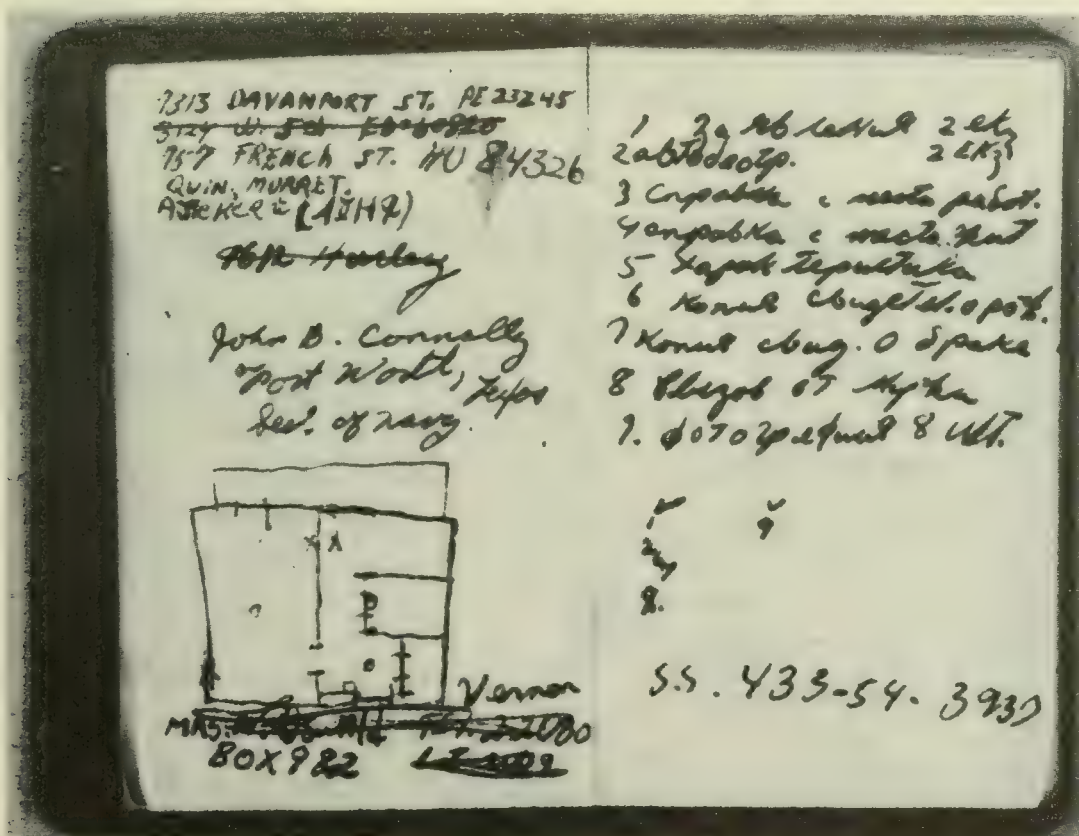 7313 DAVANPORT ST. PE 23245
757 FRENCH ST. HU 84326
QUIN. MURRET.
John B. Connally
Fort Worth, Texas
Sec. of Navy.
Vernon
MRS.
BOX 982
1 Заявления 2 екз
2 автобиогр. 2 екз
3 Справка с места работ.
4 справка с места жит
5 Характеристика
6 Копия свидетел. о рож.
7 Копия свид. о брака
8 Вызов от мужа
9. фотография 8 шт.
8.
S.S. 433-54-3937